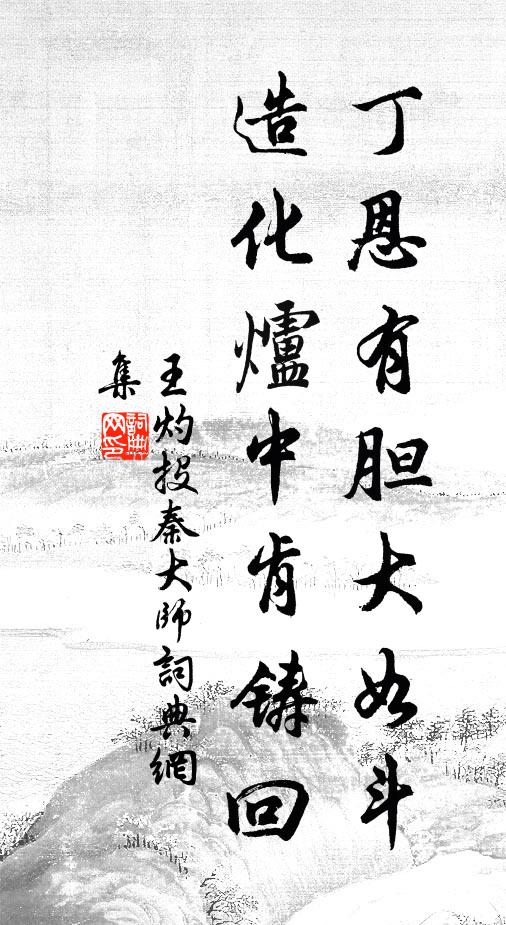 丁恩有胆大如斗
造化爐中肯铸回
王灼投秦大師詞典網
集
詞典網印